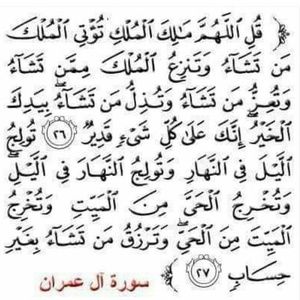 ﴿ قُلِ ٱللَّهُمَّ مَٰلِكَ ٱلْمُلْكِ تُؤْتِى ٱلْمُلْكَ
مَن تَشَآءُ وَتَنزِعُ ٱلْمُلْكَ مِمَّن تَشَآءُ
وَتُعِزُّ مَن تَشَآءُ وَتُذِلُّ مَن تَشَآءُ ۖ بِيَدِكَ
ٱلْخَيْرُ ۖ إِنَّكَ عَلَىٰ كُلِّ شَىْءٍ قَدِيرٌ ٢٦ تُولِجُ
ٱلَّيْلَ فِى ٱلنَّهَارِ وَتُولِجُ ٱلنَّهَارَ فِى ٱلَّيْلِ ۖ
وَتُخْرِجُ ٱلْحَىَّ مِنَ ٱلْمَيِّتِ وَتُخْرِجُ
ٱلْمَيِّتَ مِنَ ٱلْحَىِّ ۖ وَتَرْزُقُ مَن تَشَآءُ بِغَيْرِ
حِسَابٍ ٢٧ ﴾ سورة آل عمران